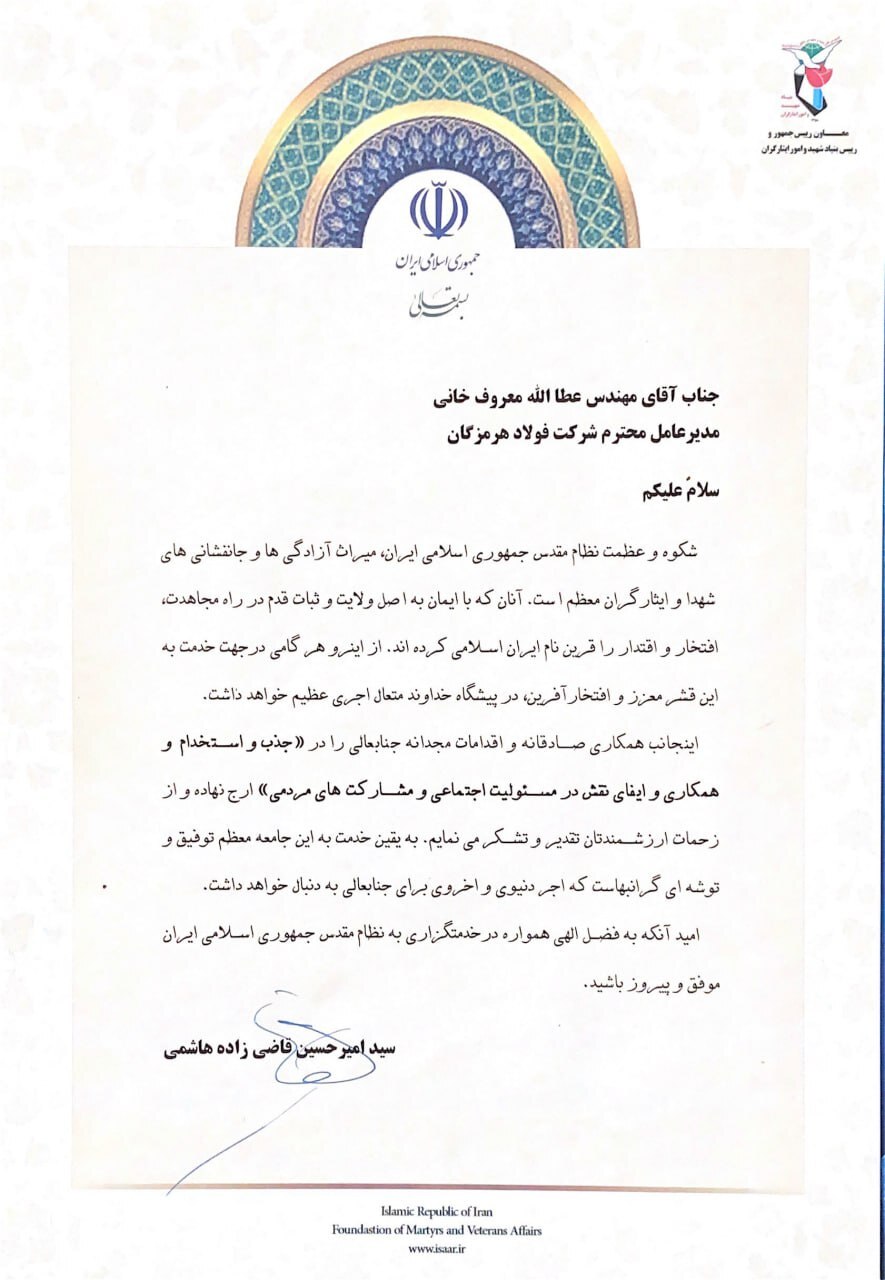 معـــاون رییس جمهور و
رییس بنیاد شهید و امور ایثارگران
جمهوری اسلامی ایران
بسمه تعالی
جناب آقای مهندس عطا الله معروف خانی
مدیرعامل محترم شرکت فولاد هرمزگان
سلامٌ علیکم
شکوه و عظمت نظام مقدس جمهوری اسلامی ایران، میراث آزادگی ها و جانفشانی های
شهدا و ایثارگران معظم است. آنان که با ایمان به اصل ولایت و ثبات قدم در راه مجاهدت،
افتخار و اقتدار را قرین نام ایران اسلامی کرده اند. از اینرو هر گامی درجهت خدمت به
این قشر معزز و افتخارآفرین، در پیشگاه خداوند متعال اجری عظیم خواهد داشت.
اینجانب همکاری صـادقانه و اقدامات مجدانه جنابعالی را در «جذب و اسـتخدام و
همکاری و ایفای نقش در مسـئولیت اجتماعی و مشـارکت های مردمی» ارج نهاده و از
زحمات ارزشـمندتان تقدیر و تشـکر می نمایم. به یقین خدمت به این جامعه معظم توفیق و
توشه ای گرانبهاست که اجر دنیوی و اخروی برای جنابعالی به دنبال خواهد داشت.
امید آنکه به فضل الهی همواره درخدمتگزاری به نظام مقدس جمهوری اسـلامی ایران
موفق و پیروز باشید.
سید امیرحسین قاضی زاده هاشمی
Islamic Republic of Iran
Foundastion of Martyrs and Veterans Affairs
www.isaar.ir